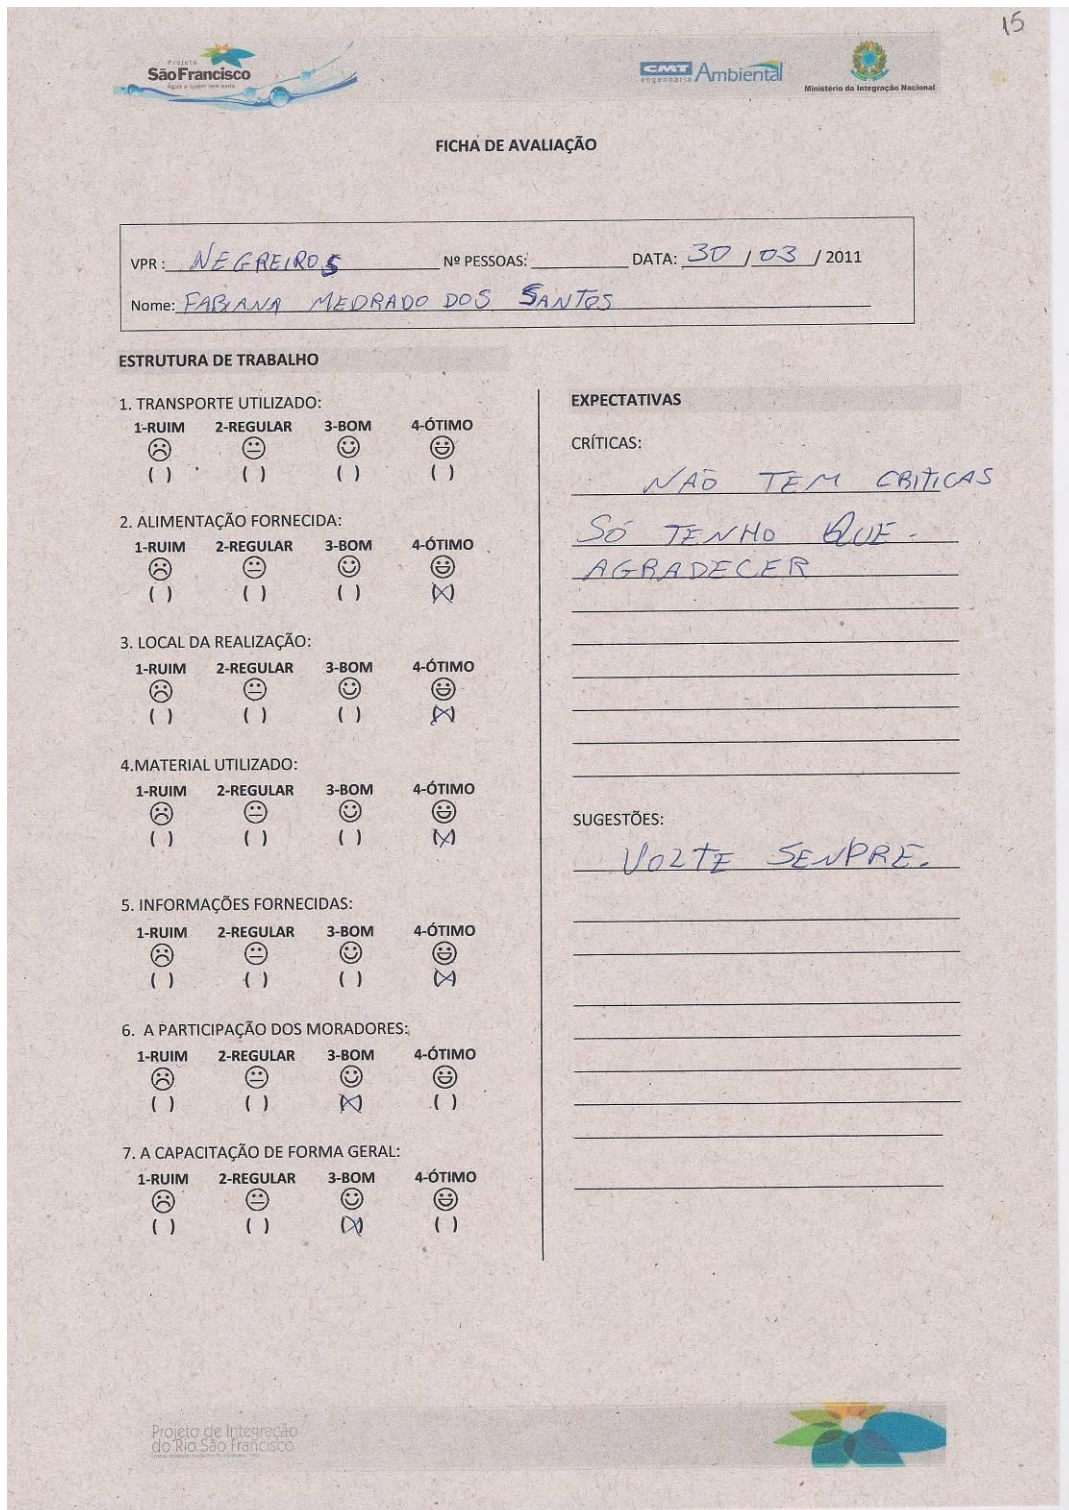 15
Projeto
São Francisco
Água a quem tem sede
CMT Ambiental
engenharia
Ministério da Integração Nacional
FICHA DE AVALIAÇÃO
VPR : NEGREIROS Nº PESSOAS: DATA: 30 / 03 / 2011
Nome: FABIANA MEDRADO DOS SANTOS
ESTRUTURA DE TRABALHO
1. TRANSPORTE UTILIZADO:
1-RUIM 2-REGULAR 3-BOM 4-ÓTIMO
( ) ( ) ( ) ( )
2. ALIMENTAÇÃO FORNECIDA:
1-RUIM 2-REGULAR 3-BOM 4-ÓTIMO
( ) ( ) ( ) (X)
3. LOCAL DA REALIZAÇÃO:
1-RUIM 2-REGULAR 3-BOM 4-ÓTIMO
( ) ( ) ( ) (X)
4.MATERIAL UTILIZADO:
1-RUIM 2-REGULAR 3-BOM 4-ÓTIMO
( ) ( ) ( ) (X)
5. INFORMAÇÕES FORNECIDAS:
1-RUIM 2-REGULAR 3-BOM 4-ÓTIMO
( ) ( ) ( ) (X)
6. A PARTICIPAÇÃO DOS MORADORES:
1-RUIM 2-REGULAR 3-BOM 4-ÓTIMO
( ) ( ) (X) ( )
7. A CAPACITAÇÃO DE FORMA GERAL:
1-RUIM 2-REGULAR 3-BOM 4-ÓTIMO
( ) ( ) (X) ( )
EXPECTATIVAS
CRÍTICAS:
NÃO TEM CRITICAS
SÓ TENHO QUE
AGRADECER
SUGESTÕES:
VOLTE SENPRE.
Projeto de Integração
do Rio São Francisco